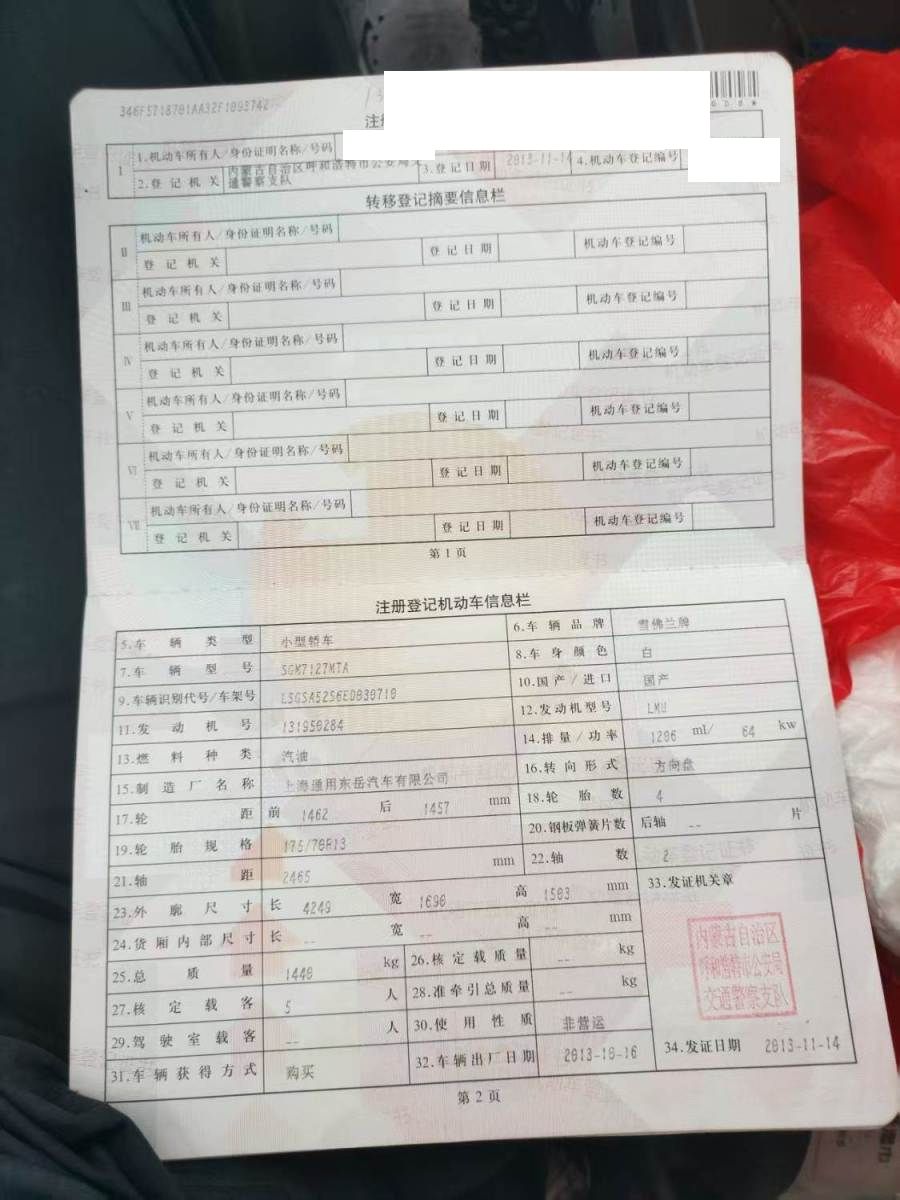 346F5718701AA32F1093742
注册
I 1.机动车所有人/身份证明名称/号码
2.登记机关 内蒙古自治区呼和浩特市公安局交通警察支队 3.登记日期 2013-11-14 4.机动车登记编号
转移登记摘要信息栏
II 机动车所有人/身份证明名称/号码
登记机关 登记日期 机动车登记编号
III 机动车所有人/身份证明名称/号码
登记机关 登记日期 机动车登记编号
IV 机动车所有人/身份证明名称/号码
登记机关 登记日期 机动车登记编号
V 机动车所有人/身份证明名称/号码
登记机关 登记日期 机动车登记编号
VI 机动车所有人/身份证明名称/号码
登记机关 登记日期 机动车登记编号
VII 机动车所有人/身份证明名称/号码
登记机关 登记日期 机动车登记编号
第1页
注册登记机动车信息栏
5.车辆类型 小型轿车 6.车辆品牌 雪佛兰牌
7.车辆型号 SGM7127MTA 8.车身颜色 白
9.车辆识别代号/车架号 10.国产/进口 国产
11.发动机号 131950284 12.发动机型号 LMU
13.燃料种类 汽油 14.排量/功率 1206 ml/ 64 kw
15.制造厂名称 上海通用东岳汽车有限公司 16.转向形式 方向盘
17.轮距 前 1462 后 1457 mm 18.轮胎数 4
19.轮胎规格 175/70R13 20.钢板弹簧片数 后轴 -- 片
21.轴距 2465 mm 22.轴数 2
23.外廓尺寸 长 4249 宽 1690 高 1503 mm 33.发证机关章
24.货厢内部尺寸 长 -- 宽 -- 高 -- mm
25.总质量 1440 kg 26.核定载质量 -- kg
27.核定载客 5 人 28.准牵引总质量 -- kg
内蒙古自治区
呼和浩特市公安局
交通警察支队
29.驾驶室载客 -- 人 30.使用性质 非营运
31.车辆获得方式 购买 32.车辆出厂日期 2013-10-16 34.发证日期 2013-11-14
第2页